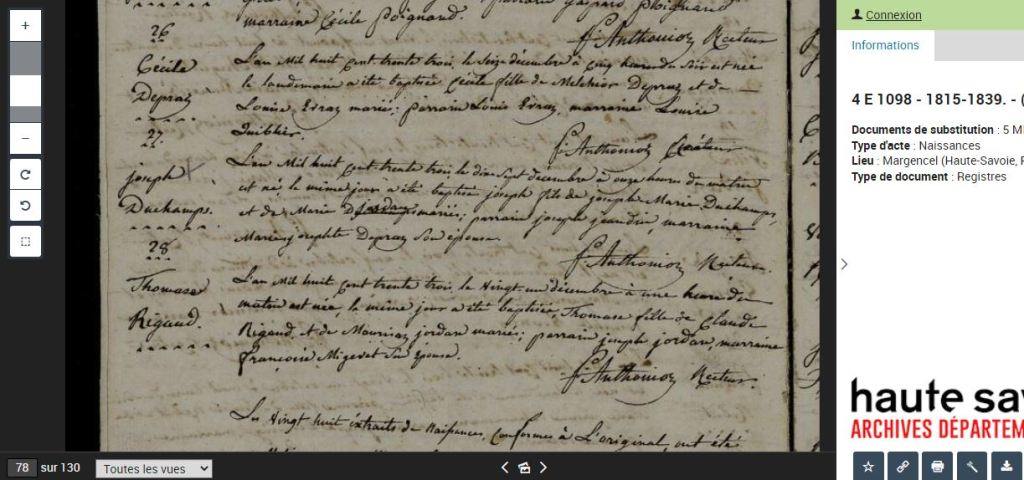 marraine Cécile Poignand.
f. Anthonioz Recteur
26
Cécile
Depraz
L'an Mil huit Cent trente trois, le Seize décembre à Cinq heures du Soir est née
le lendemain a été baptisée Cécile fille de Melchior Depraz et de
Louise Evraz mariés; parrain Louis Evraz, marraine Louise
Quiblier.
f. Anthonioz Recteur
27.
joseph
Duchamps.
L'an Mil huit Cent trente trois le dix Sept decembre à onze heures du matin
est né, le même jour a été baptisé joseph fils de joseph Marie Duchamps,
et de Marie mariés; parrain joseph jeandin, marraine
Marie josephte Depraz Son épouse.
f. Anthonioz Recteur.
28
Thomase
Rigaud.
L'an Mil huit Cent trente trois, le Vingt un décembre à une heure du
matin est née, le même jour a été baptisée, Thomase fille de Claude
Rigaud, et de Mauriza jordan mariés; parrain joseph jordan, marraine
françoise Migevet Son épouse.
f. Anthonioz Recteur.
Les Vingt huit éxtraits de Naissances, Conformes à L'original ont été
78 sur 130
Toutes les vues
Connexion
Informations
4 E 1098 - 1815-1839. - (
Documents de substitution : 5 M
Type d'acte : Naissances
Lieu : Margencel (Haute-Savoie, F
Type de document : Registres
haute sa
ARCHIVES DÉPARTEM